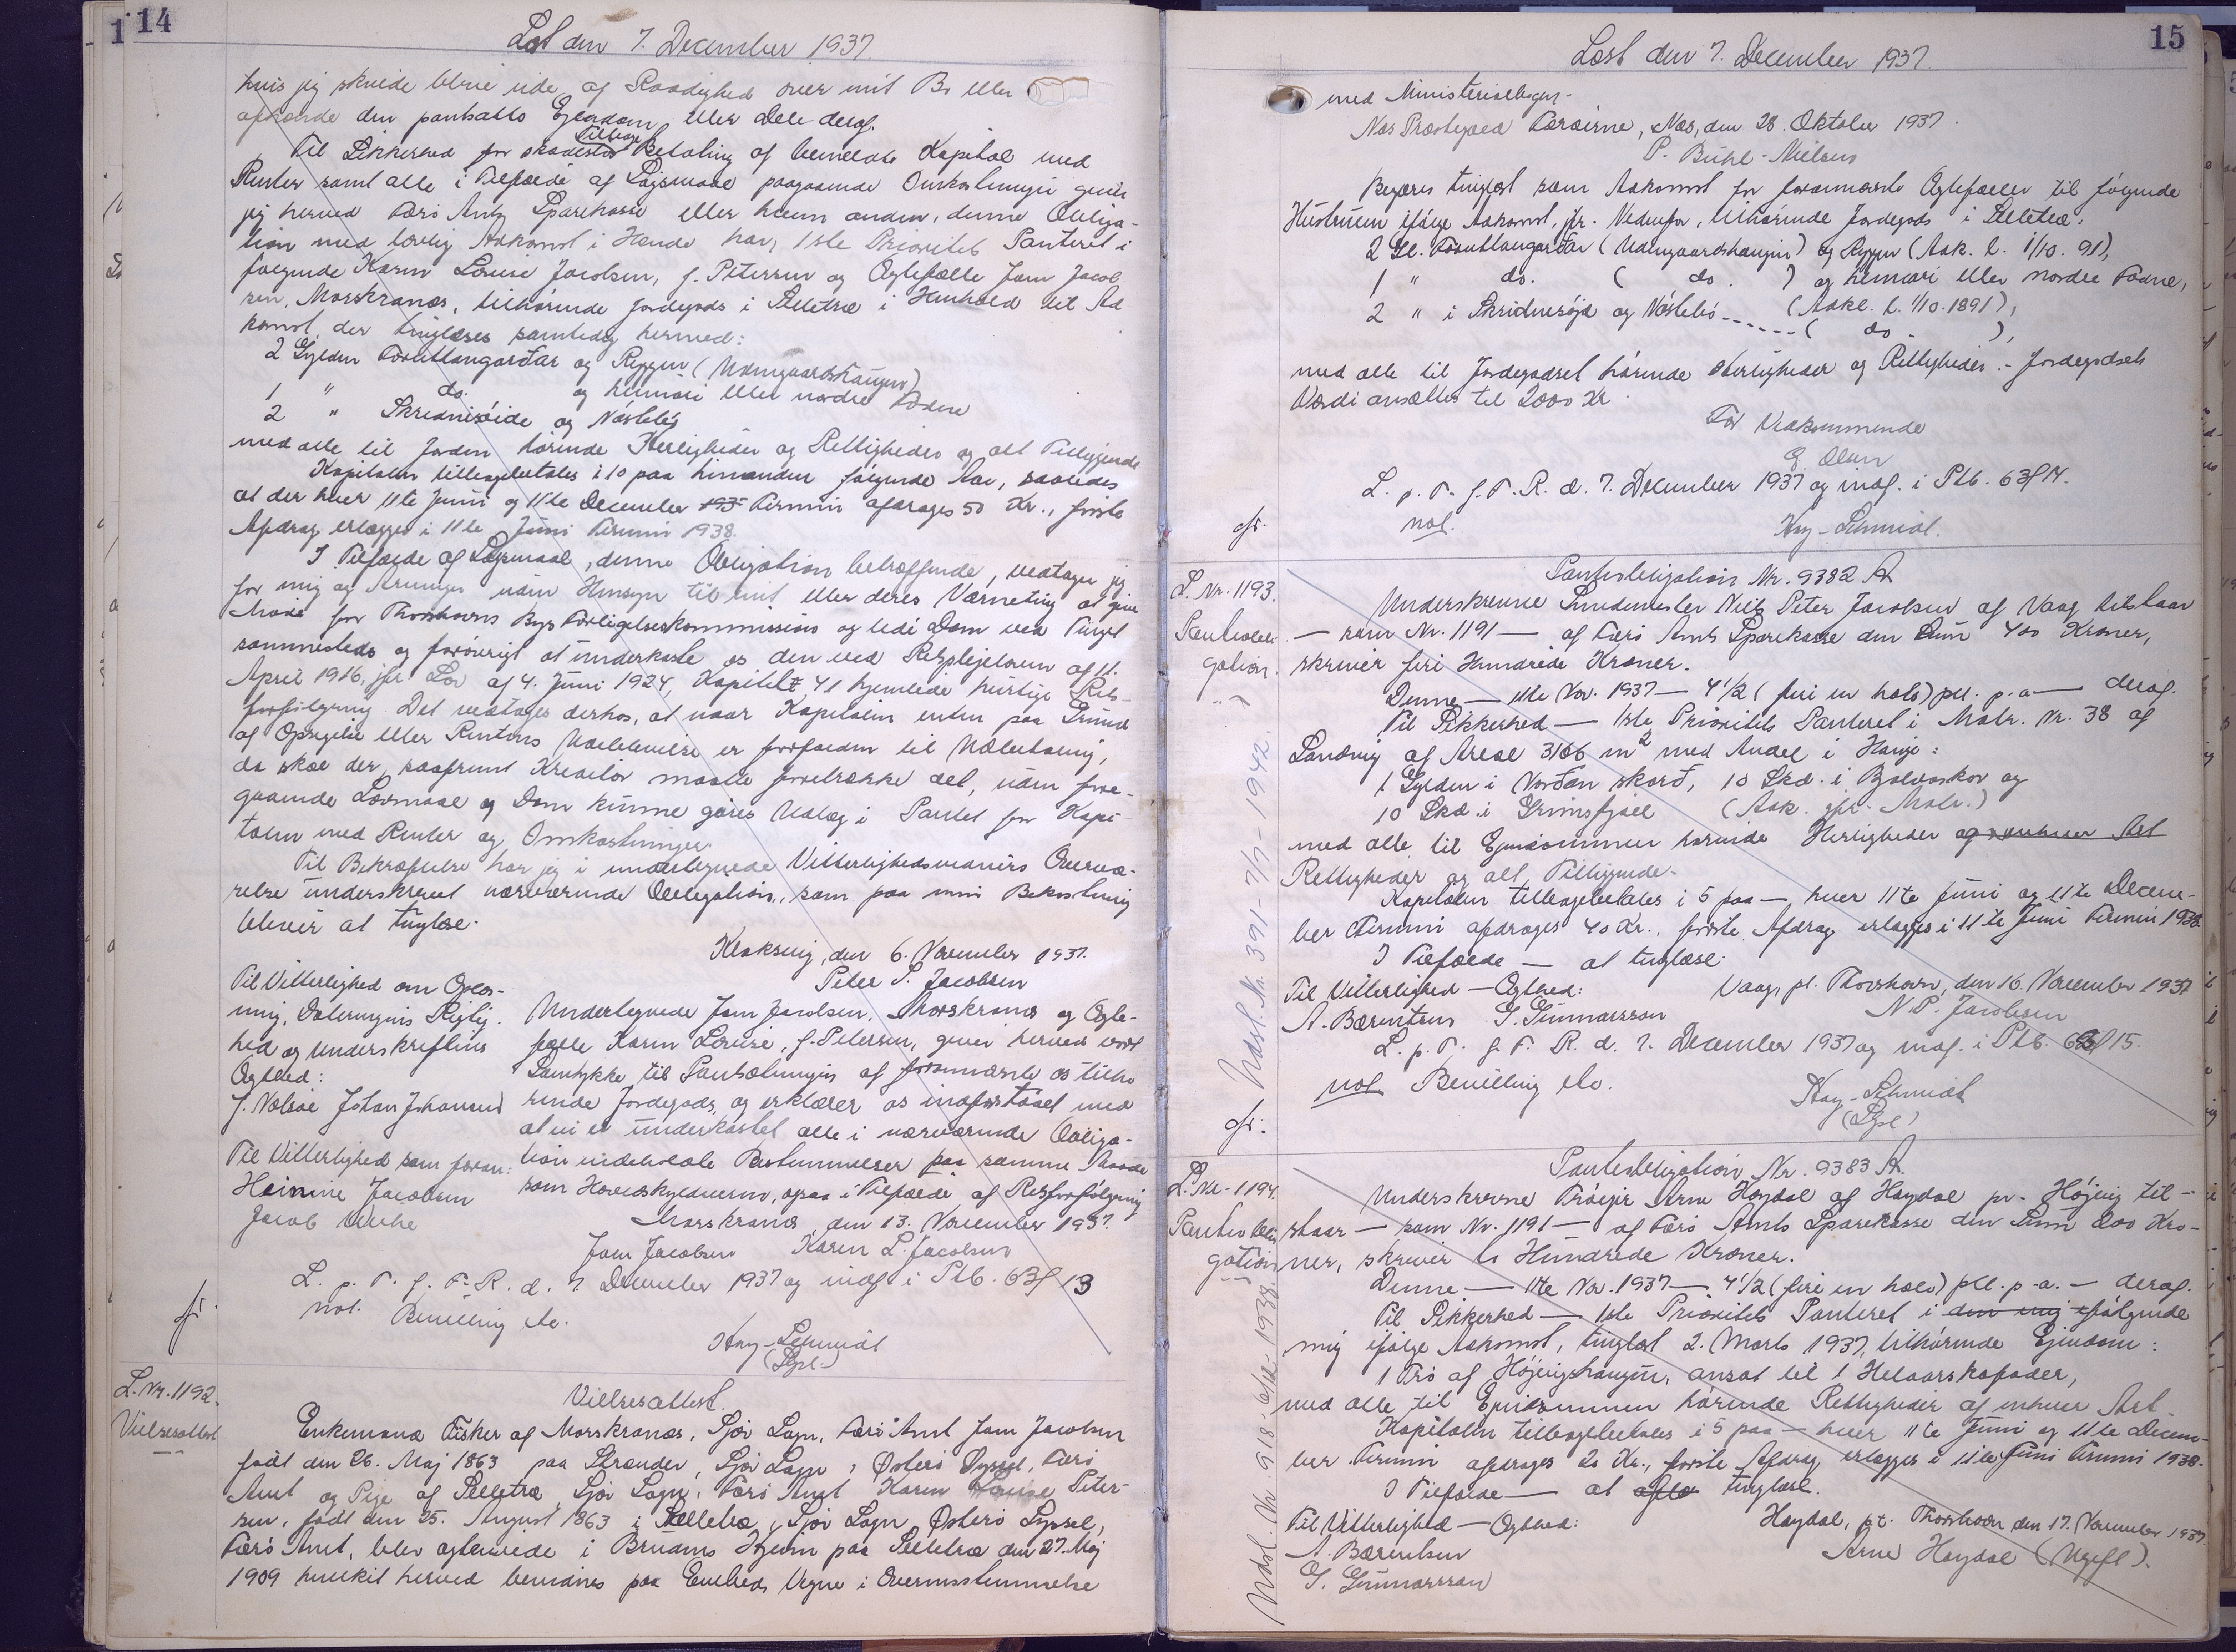 14
Læst den 7. December 1937.
hvis jeg skulde blive ude af Raadighed over mit Bo eller
afhænde den pantsatte Ejendom eller Dele deraf.
Til Sikkerhed for skadesløs Tilbage Betaling af bemeldte Kapital med
Renter samt alle i Tilfælde af Søgsmaal paagaaende Omkostninger giver
jeg herved Færø Amts Sparekasse eller hvem anden, denne Obliga-
tion med lovlig Adkomst i Hænde har, 1ste Prioritets Panteret i
følgende Karin Louise Jacobsen, f. Petersen og Ægtefælle Joen Jacob
sen, Morskranæs, tilhørende Jordegods i Selletræ i Henhold til Ad
komst, der tinglæses samtidig hermed:
2 Gylden Förutlangarðar og Ryggen (Udengaardshaugen)
1 " do. og heimari eller nordre Fodne
2 " Skridnisöide og Nástebö
med alle til Jorden hørende Herligheder og Rettigheder og alt Tilliggende
Kapitalen tilbagebetales i 10 paa hinanden følgende Aar, saaledes
at der hver 11te Juni og 11te December Termin afdrages 50 Kr., første
Afdrag erlægges i 11te Juni Termin 1938.
I Tilfælde af Søgsmaal, denne Obligation betræffende, vedtager jeg
for mig og Arvinger uden Hensyn til mit eller deres Værneting at give
Møde for Thorshavns Bys Forligelseskommission og lide Dom ved Tinget
sammesteds og forøvrigt at underkaste os den ved Retsplejeloven af 11.
April 1916, jfr. Lov af 4. Juni 1924, Kapitel 41 hjemlede hurtige Rets-
forfølgning. Det vedtages derhos, at naar Kapitalen enten paa Grund
af Opsigelse eller Rentens Udeblivelse er forfalden til Udbetaling,
da skal der, saafremt Kreditor maatte foretrække det, uden fore-
gaaende Lovmaal og Dom kunne gøres Udlæg i Pantet for Kapi
talen med Renter og Omkostninger.
Til Bekræftelse har jeg i undertegnede Vitterlighedsvidners Overvæ-
relse underskrevet nærværende Obligation, som paa min Bekostning
bliver at tinglæse.
Klaksvig, den 6. November 1937.
Peter S. Jacobsen
Til Vitterlighed om Oplæs-
ning, Dateringens Rigtig-
hed og Underskriftens
Ægthed:
J. Nolsøe Johan Johansen
Til Vitterlighed som foran:
Heinine Jacobsen
Jacob
Undertegnede Joen Jacobsen, Morskranæs og Ægte-
fælle Karin Louise, f. Petersen, giver herved vort
Samtykke til Pantsætningen af forannævnte os tilhø
rende Jordegods, og erklærer os indforstaaet med
at vi er underkastet alle i nærværende Obliga-
tion indeholdte Bestemmelser paa samme Maade
som Hovedskyldneren, ogsaa i Tilfælde af Retsforfølgning
Morskranæs, den 13. November 1937.
Joen Jacobsen Karin L. Jacobsen
L. p. T. f. F. R. d. 7. December 1937 og indf. i Ptb. 63f 13
not. Bevilling etc.
Kay-Schmidt
(Spl.)
cfr.
L. Nr. 1192.
Vielsesattest
Vielsesattest.
Enkemand Fisker af Morskranæs, Sjov Sogn, Færø Amt Joen Jacobsen
født den 26. Maj 1863 paa Strænder, Sjov Sogn, Østerø Syssel, Færø
Amt og Pige af Selletræ, Sjov Sogn, Færø Amt Karin Louise Peter-
sen, født den 25. August 1863 i Selletræ, Sjov Sogn Østerø Syssel,
Færø Amt, blev ægteviede i Brudens Hjem paa Selletræ den 27. Maj
1909 hvilket herved bevidnes paa Embeds Vegne i Overensstemmelse
15
Læst den 7. December 1937.
med Ministerialbogen.
Næs Præstegæld Færøerne, Næs, den 28. Oktober 1937.
P. Bühl-Nielsen
Begæres tinglyst som Adkomst for forannævnte Ægtefæller til følgende
Hustruen ifølge Adkomst, jfr. Nedenfor, tilhørende Jordegods i Selletræ:
2 Gl. Förutlangarðar (Udengaardshaugen) og Ryggen (Adk. l. 1/10. 91),
1 " do. ( do. ) og heimari eller nordre Fodne,
2 " i Skridnisöjd og Nástebö ------ (Adk. l. 1/10. 1891),
( do - ),
med alle til Jordegodset hørende Herligheder og Rettigheder. - Jordegodsets
Værdi ansættes til 2000 Kr.
For Vedkommende
E. Olsen
L. p. T. f. F. R. d. 7. December 1937 og indf. i Ptb. 63f 14.
not.
Kay-Schmidt.
cfr.
L. Nr. 1193.
Pantobli-
gation.
Pantobligation Nr. 9382 A
Underskrevne Smedemester Niels Peter Jacobsen af Vaag tilstaar
— som Nr. 1191 — af Færø Amts Sparekasse den Sum 400 Kroner,
skriver fire Hundrede Kroner.
Denne — 11te Nov. 1937 — 4 1/2 (fire en halv) pCt. p. a — deraf.
Til Sikkerhed — 1ste Prioritets Panteret i Matr. Nr. 38 af
Sandvig af Areal 3166 m2 med Andel i Hauge:
1 Gylden i Norðan skorð, 10 Skd. i Bolvaskor og
10 Skd. i Grimsfjall (Adk. jfr. Matr.)
med alle til Ejendommen hørende Herligheder og enhver Art
Rettigheder og alt Tilliggende.
Kapitalen tilbagebetales i 5 paa — hver 11te Juni og 11te Decem-
ber Termin afdrages 40 Kr., første Afdrag erlægges i 11te Juni Termin 1938.
I Tilfælde — at tinglæse.
Vaag, pt. Thorshavn, den 16. November 1937
Til Vitterlighed — Ægthed:
A. Bærentsen G. Gunnarsson
N. P. Jacobsen
L. p. T. f. F. R. d. 7. December 1937 og indf. i Ptb. 63f 15.
not Bevilling etc.
Kay-Schmidt
(Spl.)
cfr.
Udsl. Nr. 391 - 7/7 - 1942.
L. Nr. 1194.
Pantobli-
gation
Pantobligation Nr. 9383 A.
Underskrevne Tróejer Arne Høydal af Høydal pr. Højvig til-
staar — som Nr. 1191 — af Færø Amts Sparekasse den Sum 200 Kro-
ner, skriver to Hundrede Kroner.
Denne — 11te Nov. 1937 — 4 1/2 (fire en halv) pCt. p. a. — deraf.
Til Sikkerhed — 1ste Prioritets Panteret i den mig følgende
mig ifølge Adkomst, tinglæst 2. Marts 1937, tilhørende Ejendom:
1 Trö af Højvigshaugen, ansat til 1 Helaarskofoder,
med alle til Ejendommen hørende Rettigheder af enhver Art.
Kapitalen tilbagebetales i 5 paa — hver 11te Juni og 11te Decem-
ber Termin afdrages 20 Kr., første Afdrag erlægges i 11te Juni Termin 1938.
I Tilfælde — at tinglæse.
Høydal, pt. Thorshavn den 17. November 1937
Til Vitterlighed — Ægthed:
A. Bærentsen
G. Gunnarsson
Arne Høydal (Ugift).
Udsl. Nr. 918 - 6/12 - 1938.